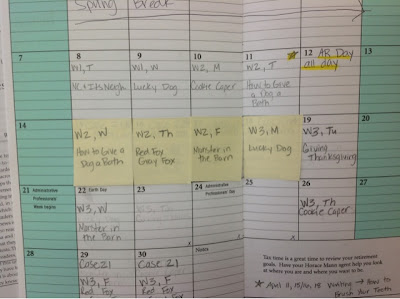 Spring Break
7
8
9
10
11
12 AR Day
all day
13
W1, T
W1, W
W2, M
W2, T
NC + Its Neigh
Lucky Dog
Cookie Caper
How to Give
a Dog a
Bath
14
W2, W
How to Give a
Dog a Bath
W2, Th
Red Fox
Gray Fox
W2, F
Monster in
the Barn
W3, M
Lucky Dog
19
W3, Tu
Giving
Thanksgiving
20
21 Administrative
Professionals
Week begins
22 Earth Day
23
24 Administrative
Professionals' Day
25
26
27
W3, W
Monster in
the Barn
W3, Th
Cookie Caper
28
29
30
Notes
Case 21
Case 21
W3, F
Red Fox
W3, F
Red Fox
Tax time is a great time to review your retirement
goals. Have your Horace Mann agent help you look
at where you are and where you want to be.
April 11, 15/16, 18 Writing → How to
Brush Your Teeth